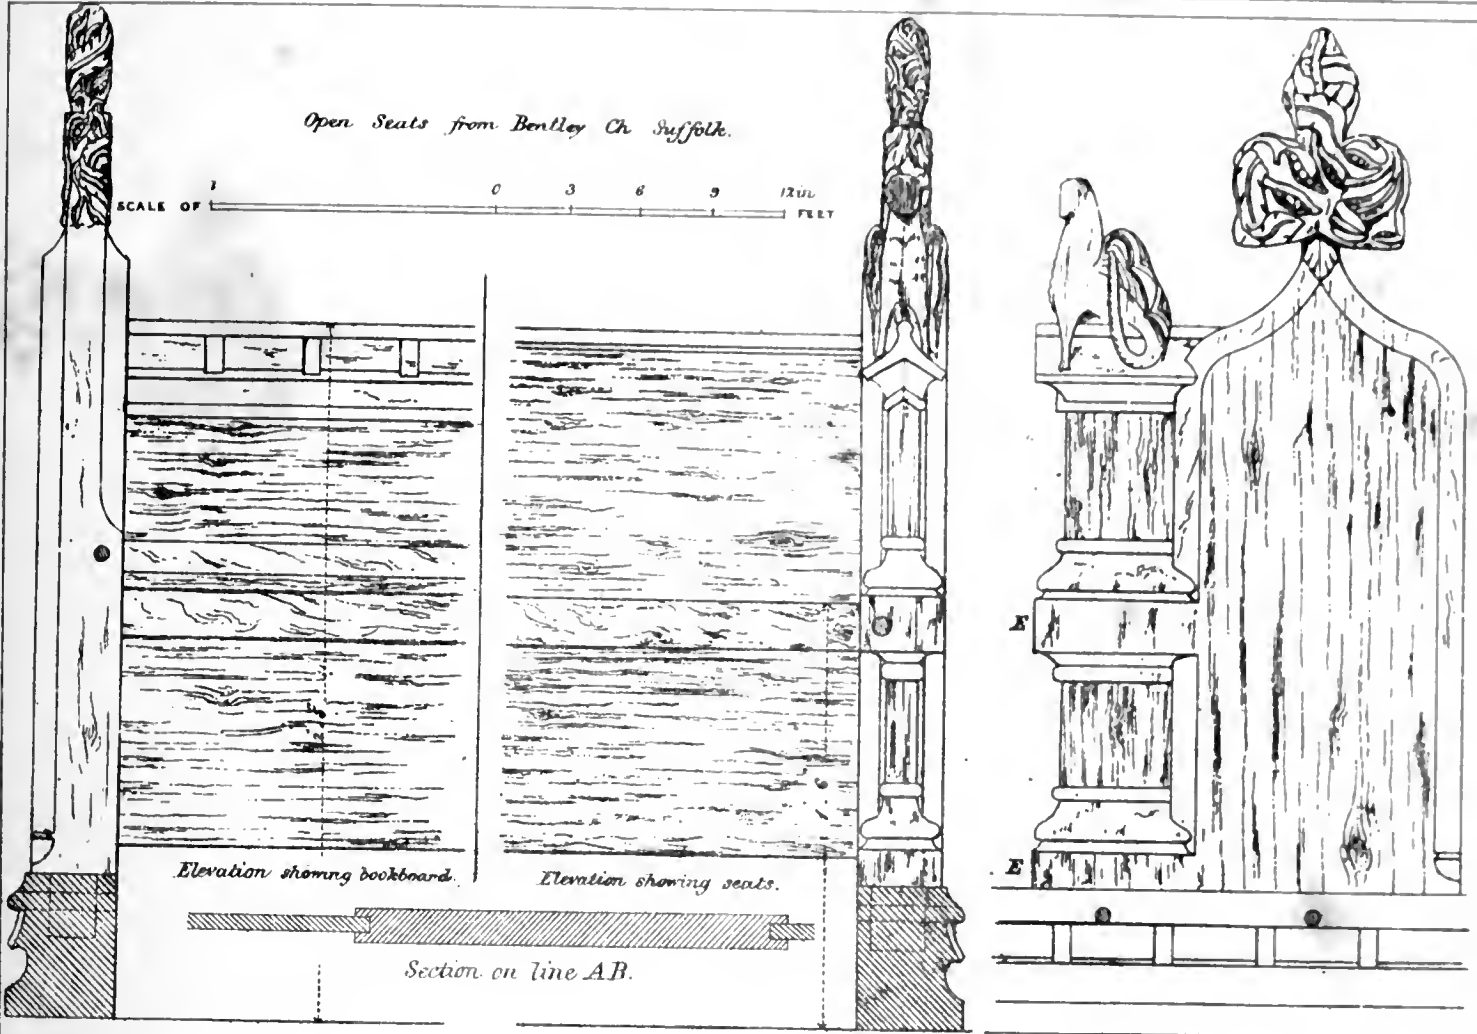 Open Seats from Bentley Ch Suffolk.
1 0 3 6 9 12in
SCALE OF FEET
E
E
Elevation showing bookboard.
Elevation showing seats.
Section on line AB.